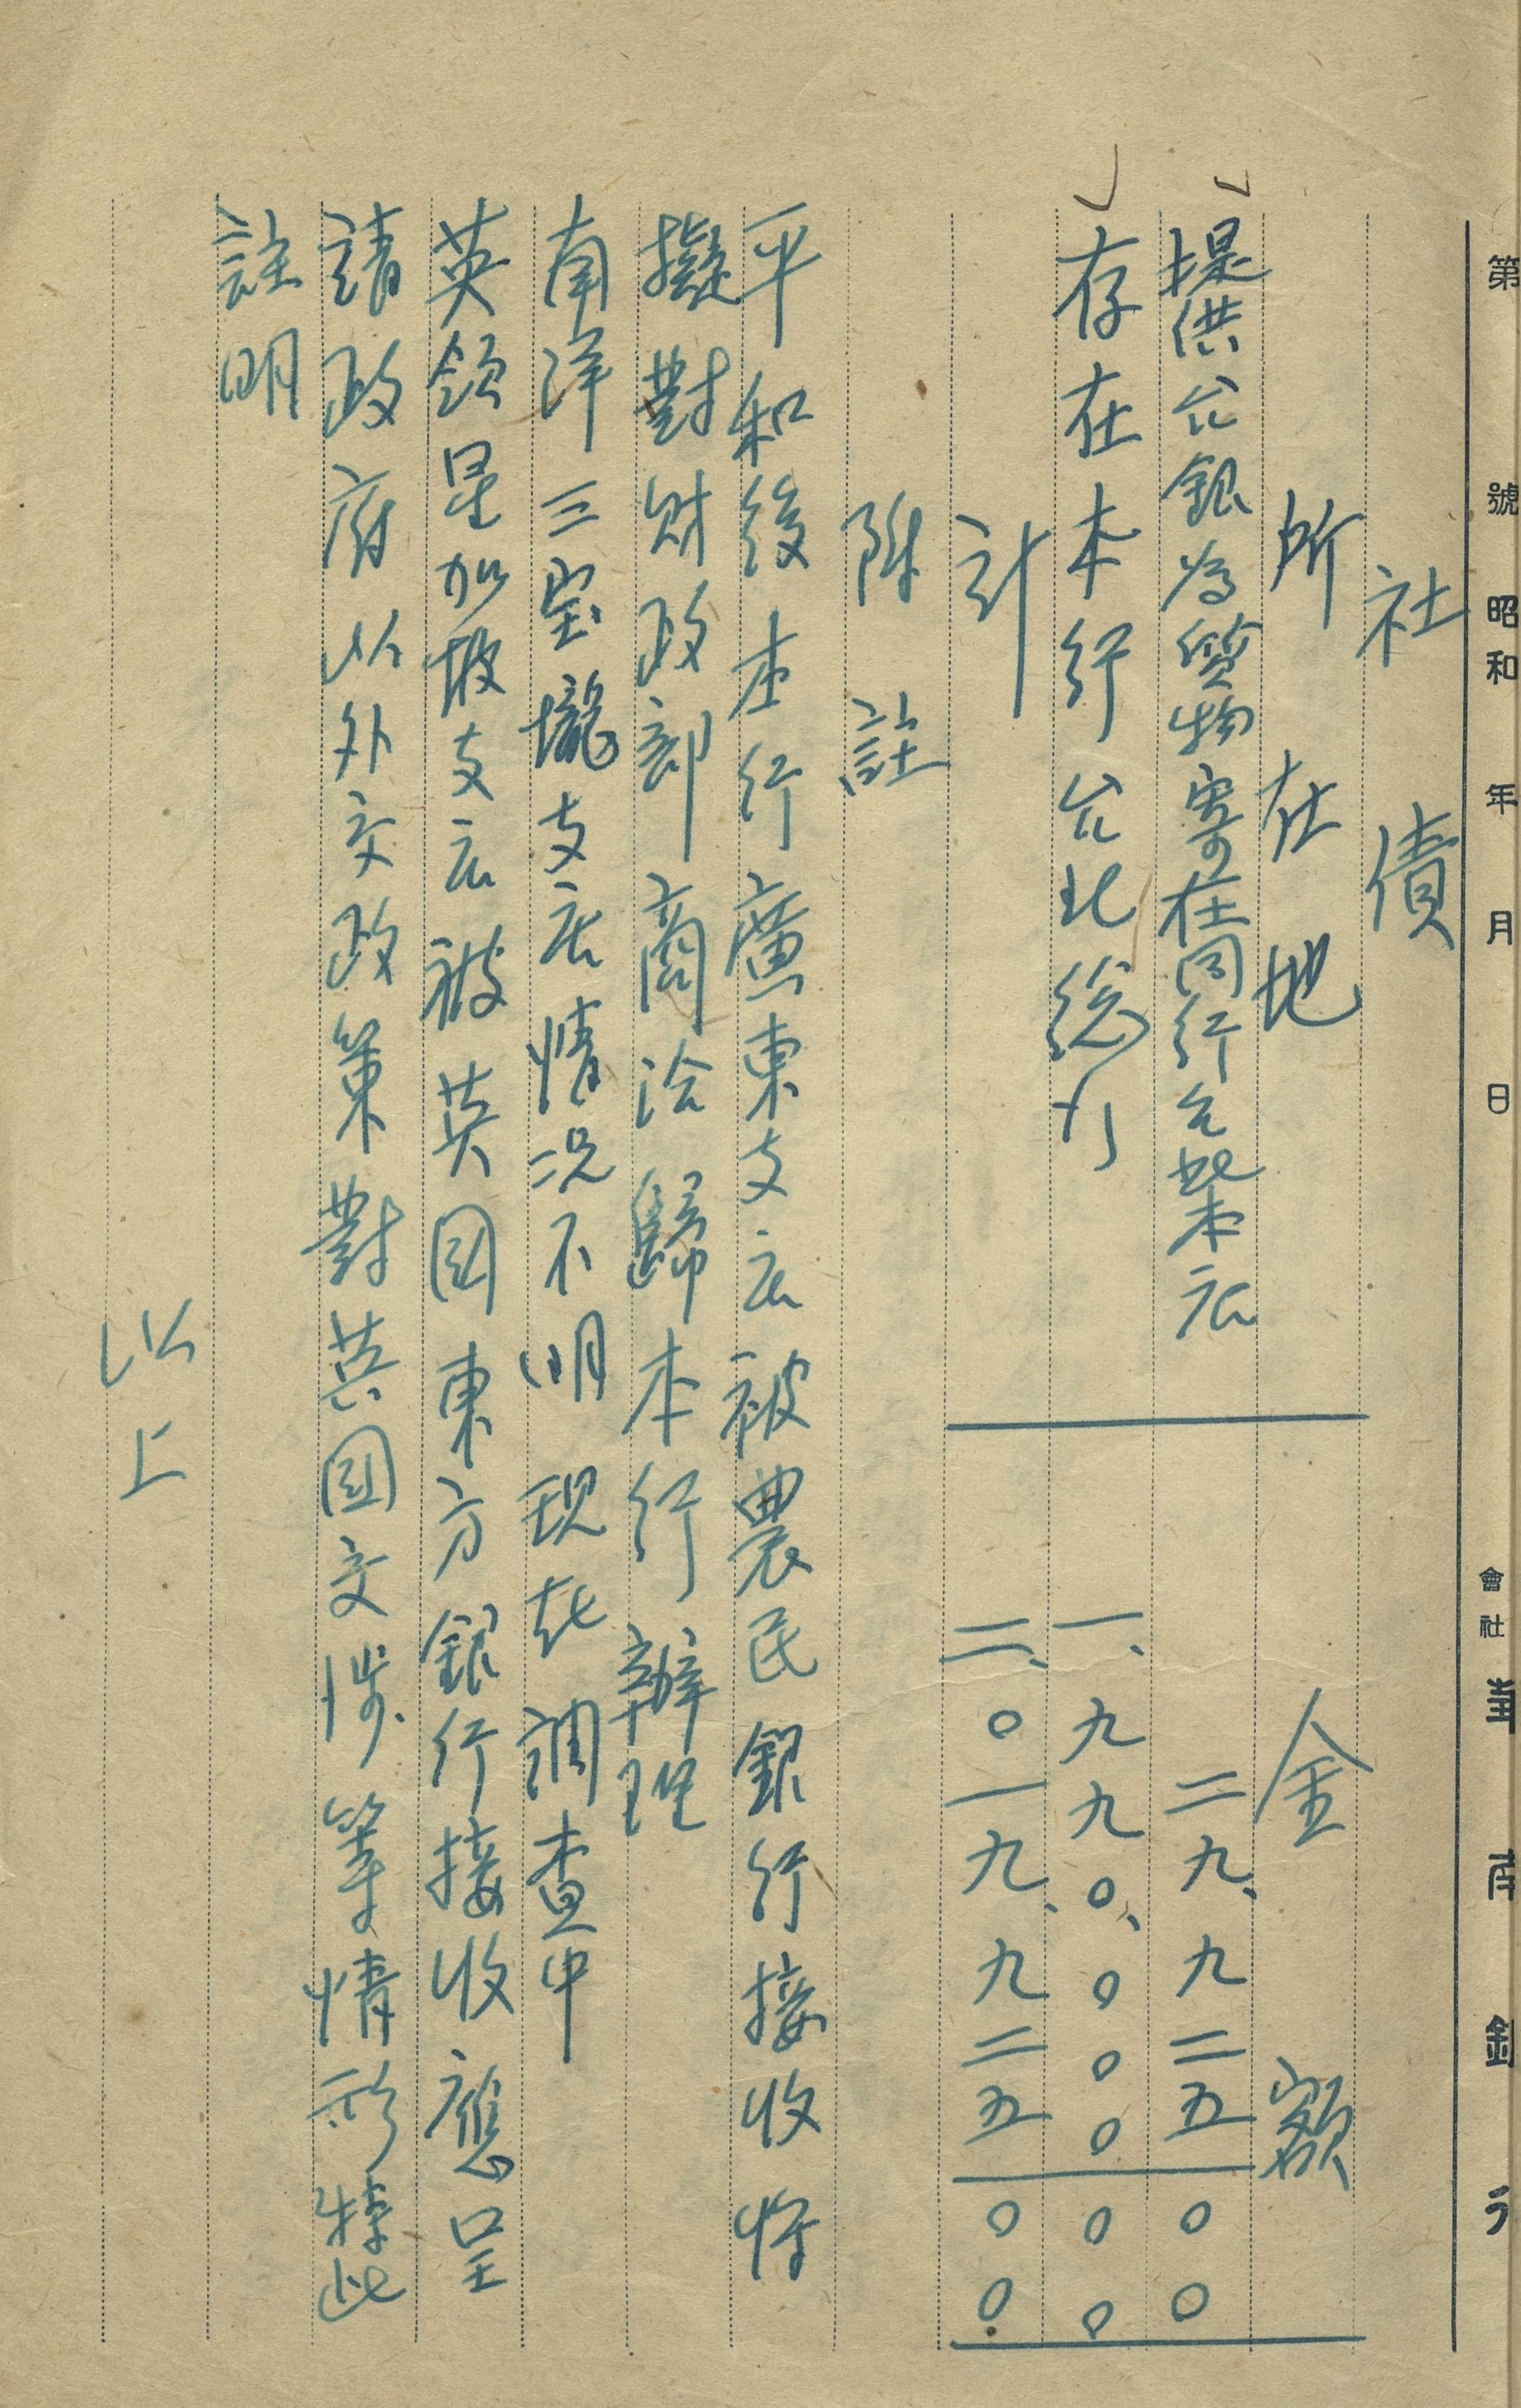 第 號 昭和 年 月 日 會社 華南銀行
社債
所在地 金額
提供台銀為質物寄在同行台北本店 二九、九二五 〇〇
存在本行台北總行 一、九九〇、〇〇〇 〇〇
計 二、〇一九、九二五 〇〇
附註
平和後本行廣東支店被農民銀行接收将
擬對財政部商洽歸本行辦理
南洋三宝壠支店情況不明現在調查中
英領星加坡支店被英国東方銀行接收應呈
請政府以外交政策對英国交涉等情形特此
註明
以上